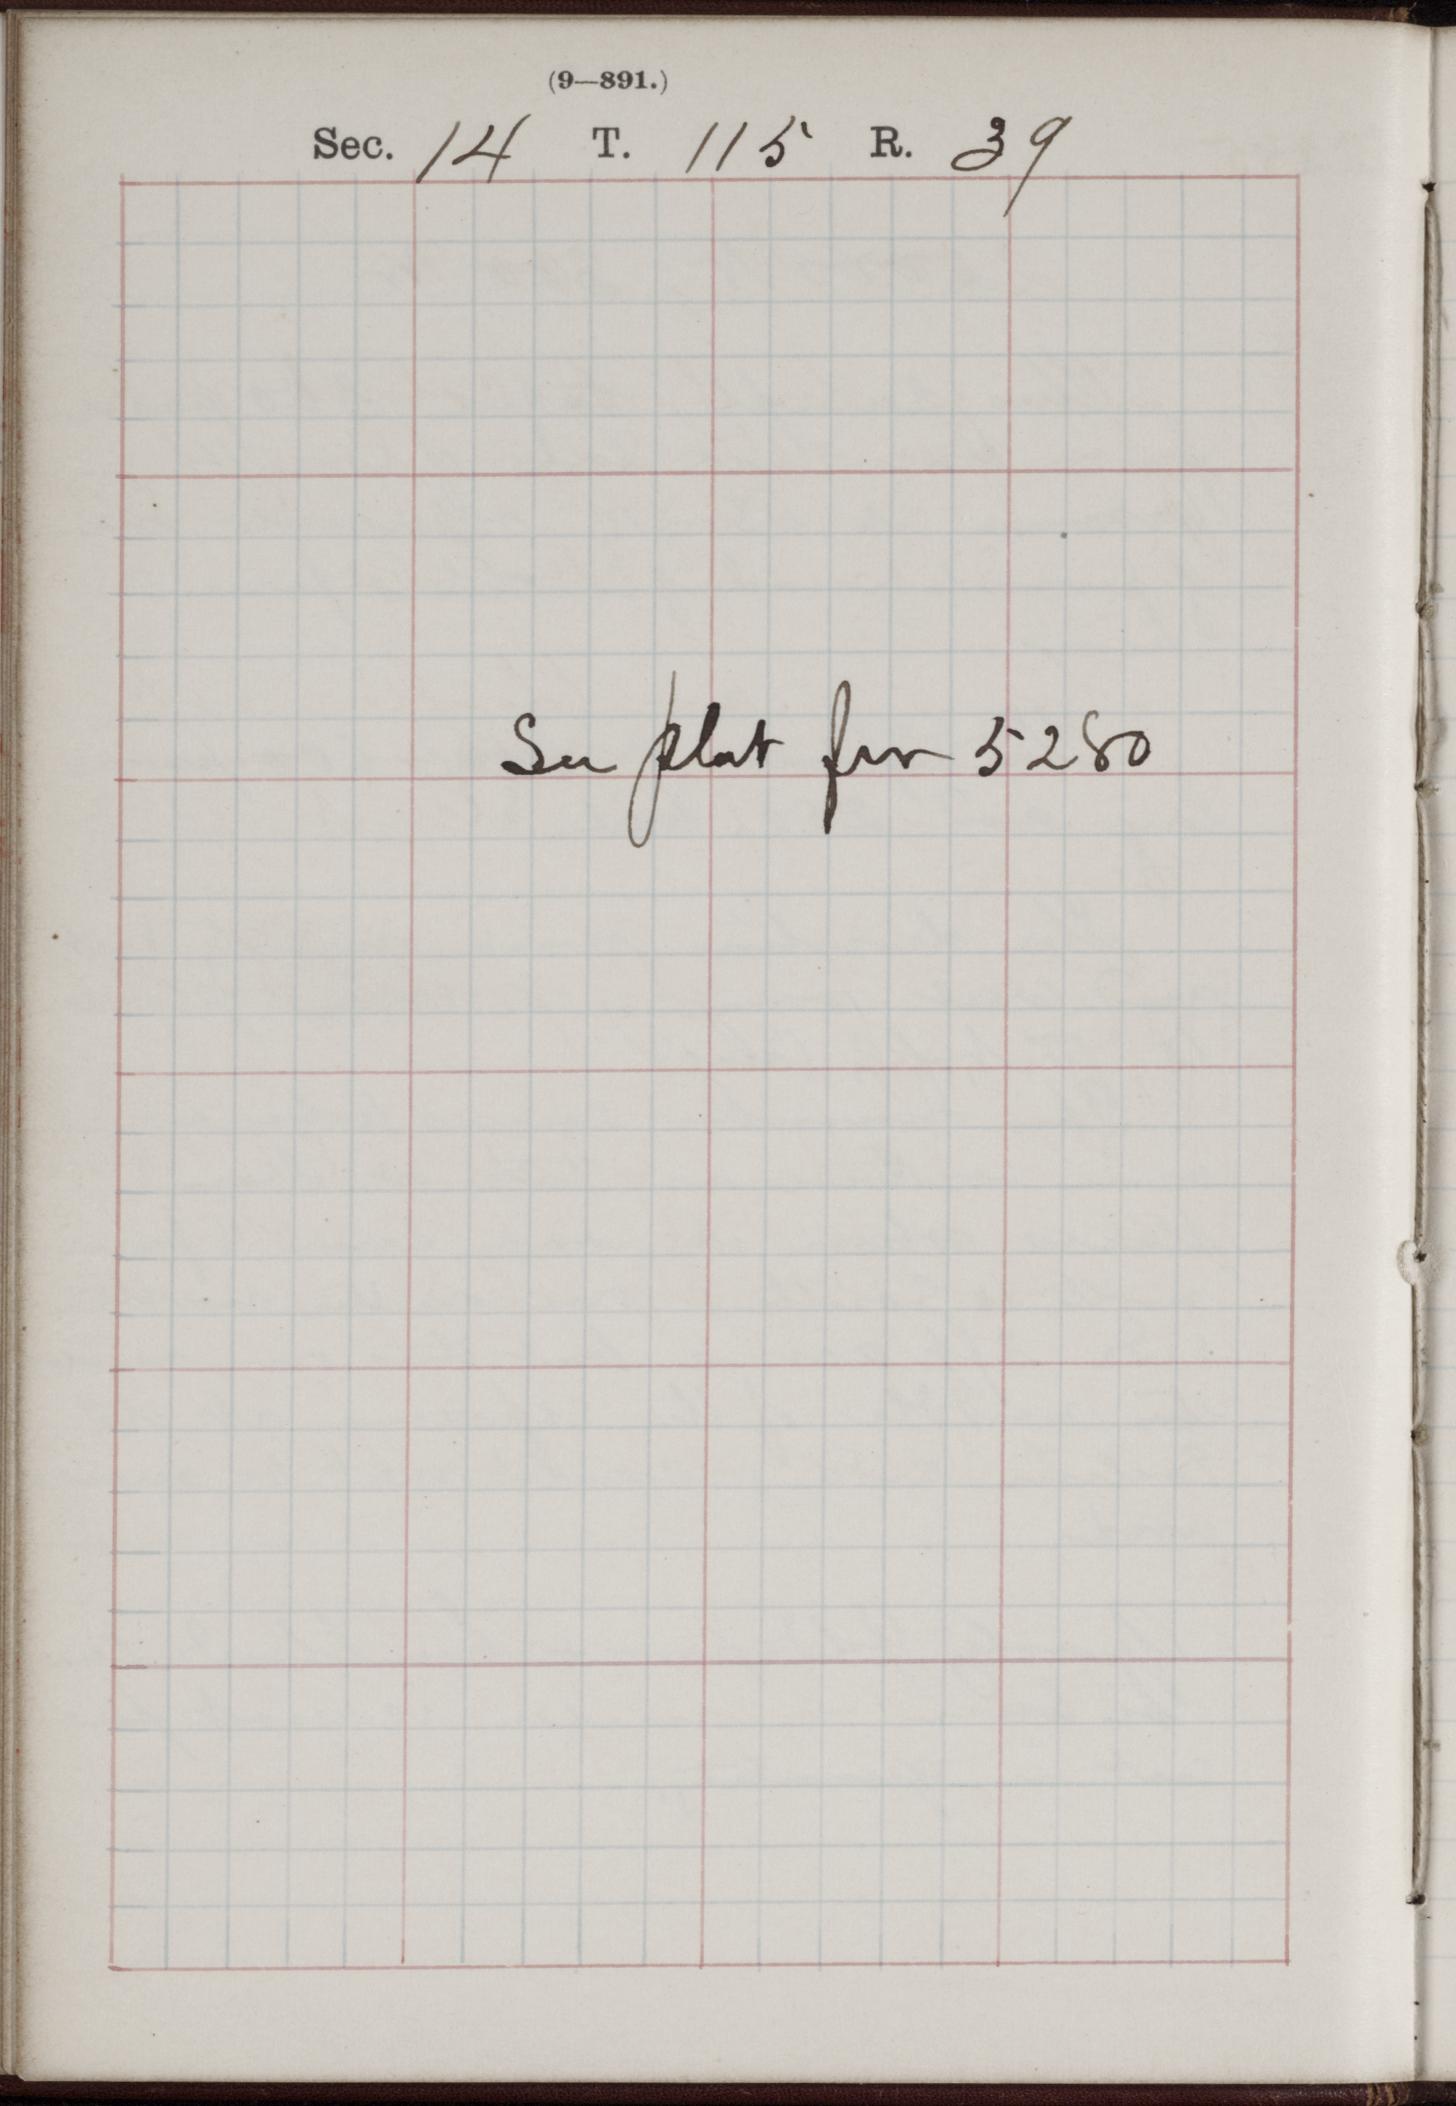 (9—891.)
Sec. 14 T. 115 R. 39
See plat for 5280